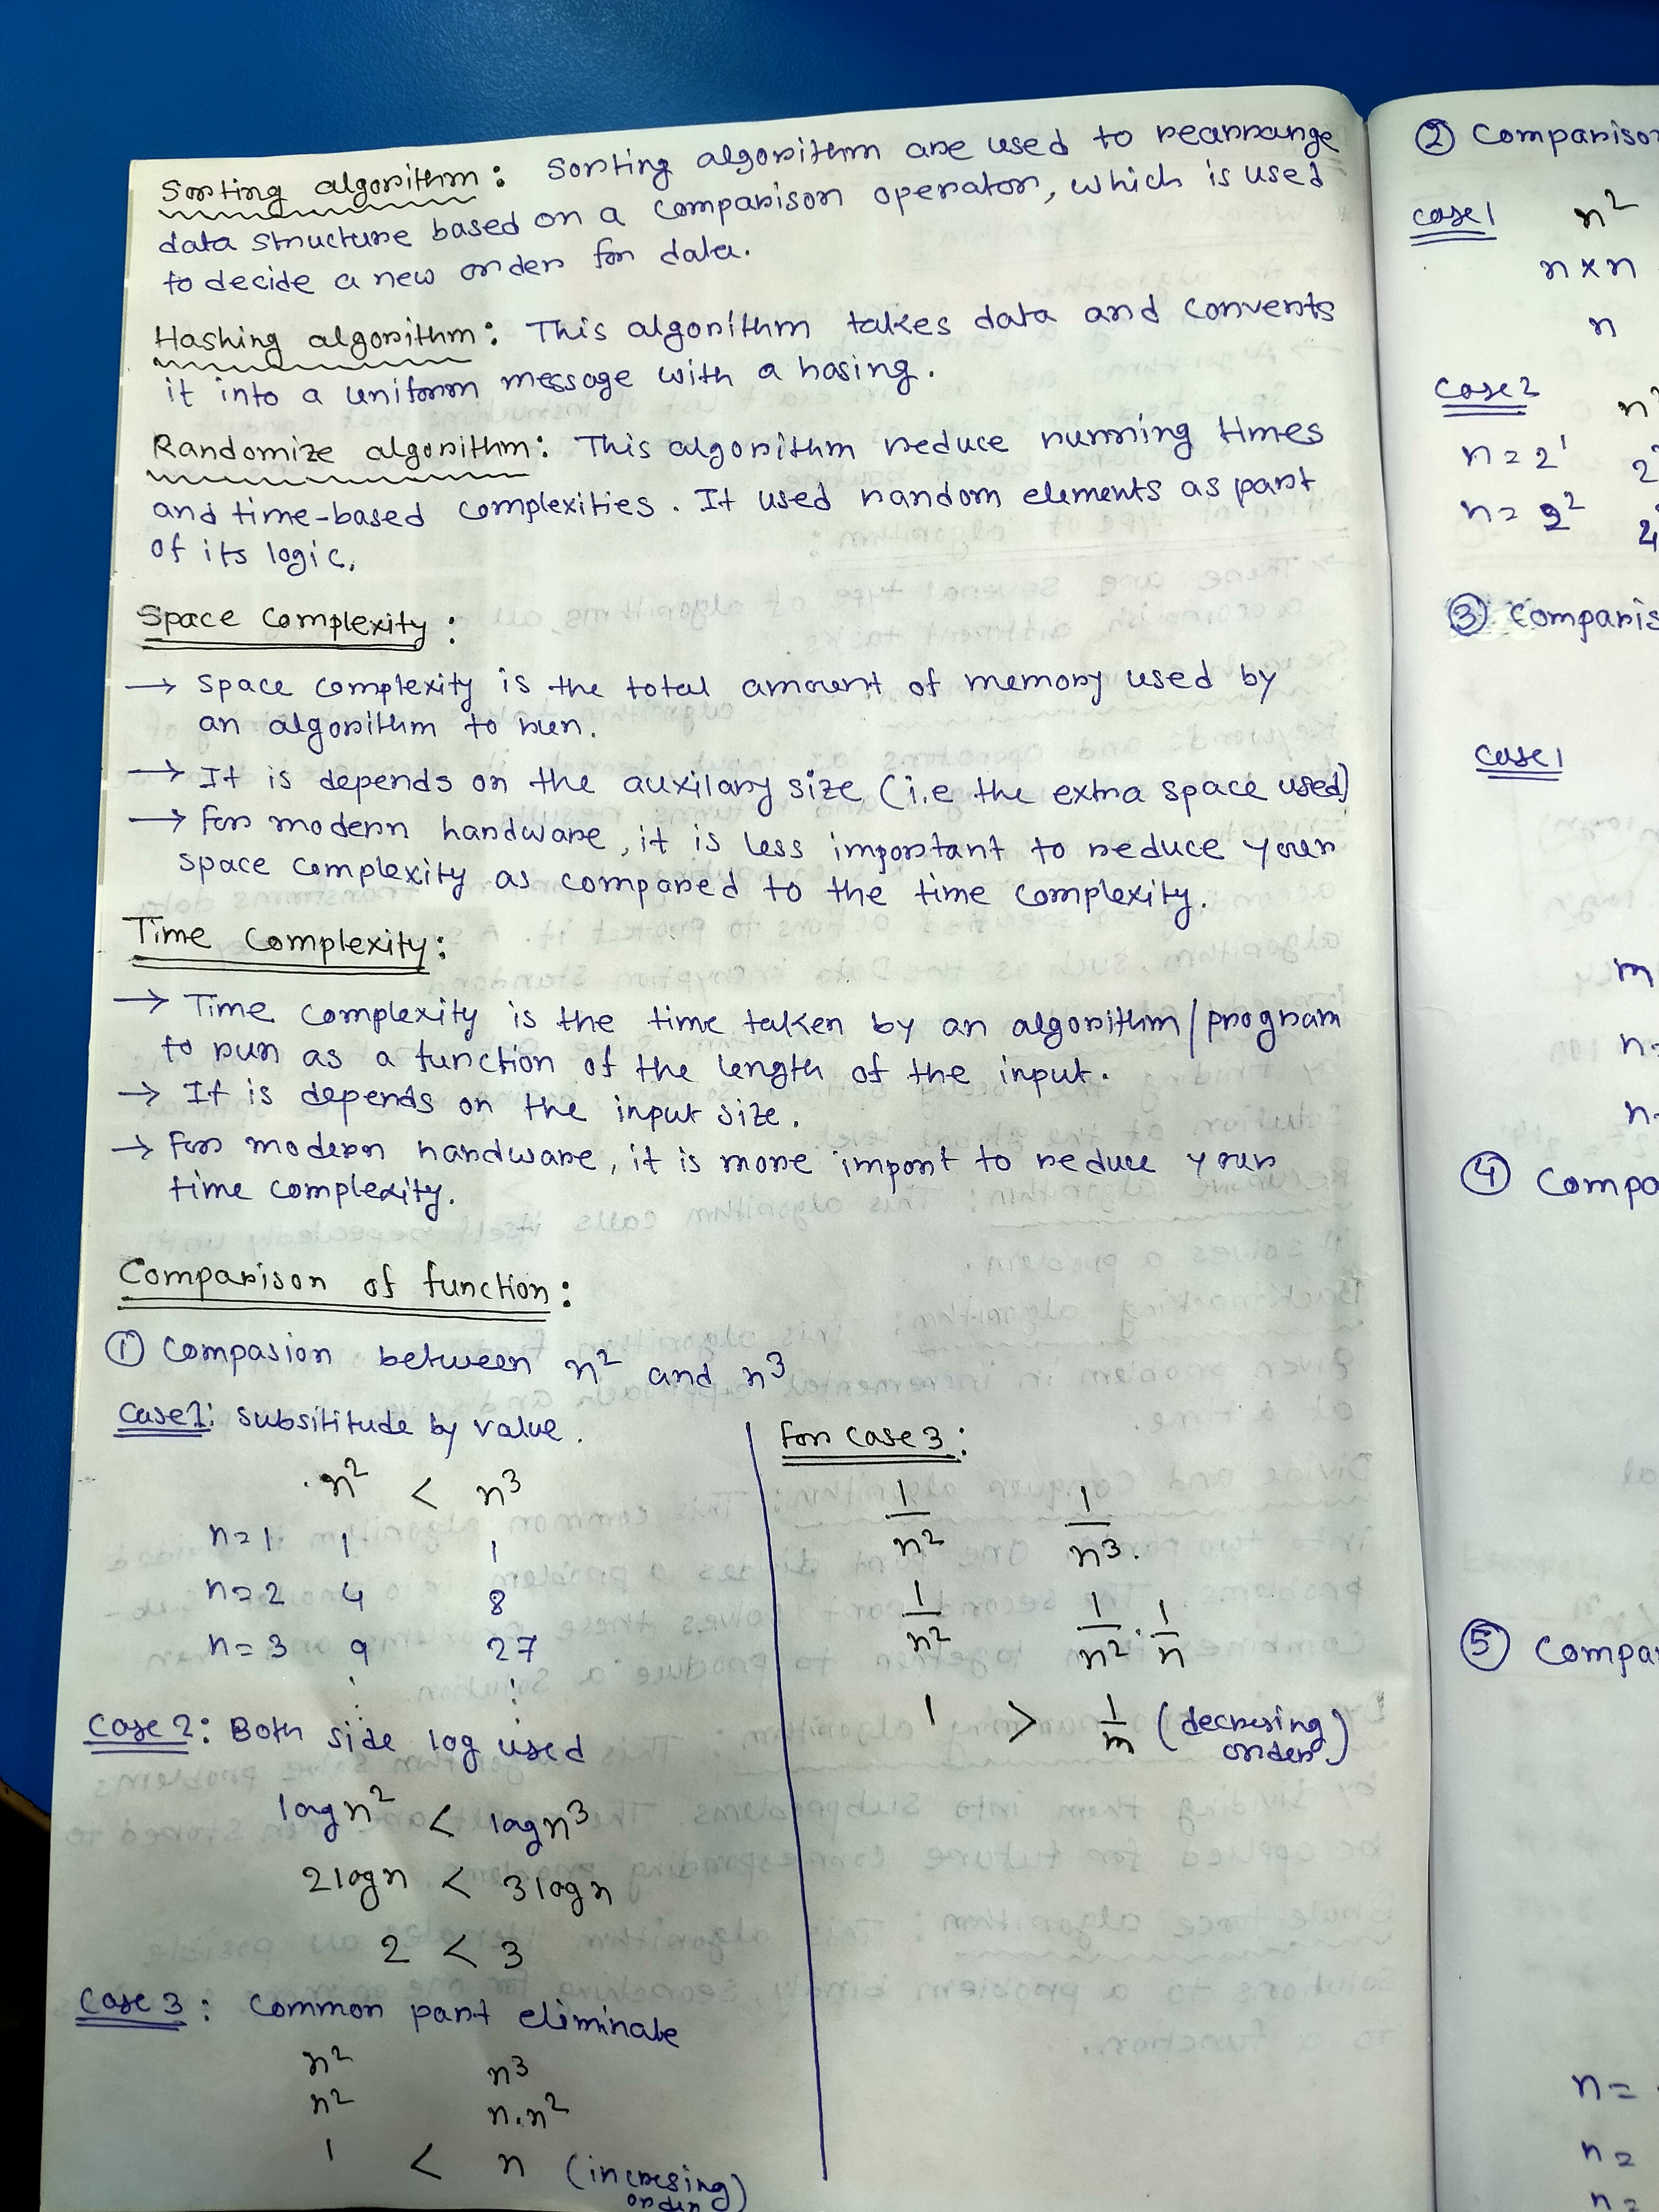 Sorting algorithm: Sorting algorithm are used to rearrange
data structure based on a comparison operator, which is used
to decide a new order for data.
Hashing algorithm: This algorithm takes data and converts
it into a uniform message with a hasing.
Randomize algorithm: This algorithm reduce running times
and time-based complexities. It used random elements as part
of its logic.
Space Complexity:
→ Space complexity is the total amount of memory used by
an algorithm to run.
→ It is depends on the auxilary size (i.e the extra space used)
→ For modern hardware, it is less important to reduce your
space complexity as compared to the time complexity.
Time Complexity:
→ Time complexity is the time taken by an algorithm/program
to run as a function of the length of the input.
→ It is depends on the input size.
→ For modern hardware, it is more import to reduce your
time complexity.
Comparison of function:
① Compasion between n² and n³
Case 1: Subsititude by value.
n² < n³
n=1 1 1
n=2 4 8
n=3 9 27
⋮ ⋮
Case 2: Both side log used
logn² < logn³
2logn < 3logn
2 < 3
Case 3: Common part eliminate
n² n³
n² n.n²
1 < n (incresing
order)
For Case 3:
1/n² 1/n³.
1/n² 1/n² · 1/n
1 > 1/n (decresing
order)
② Comparison
case 1 n²
n×n
n
Case 2
n=2¹
n=2²
③ Comparis
Case 1
m
n=
n=
④ Compa
⑤ Compar
n=
n=
n=